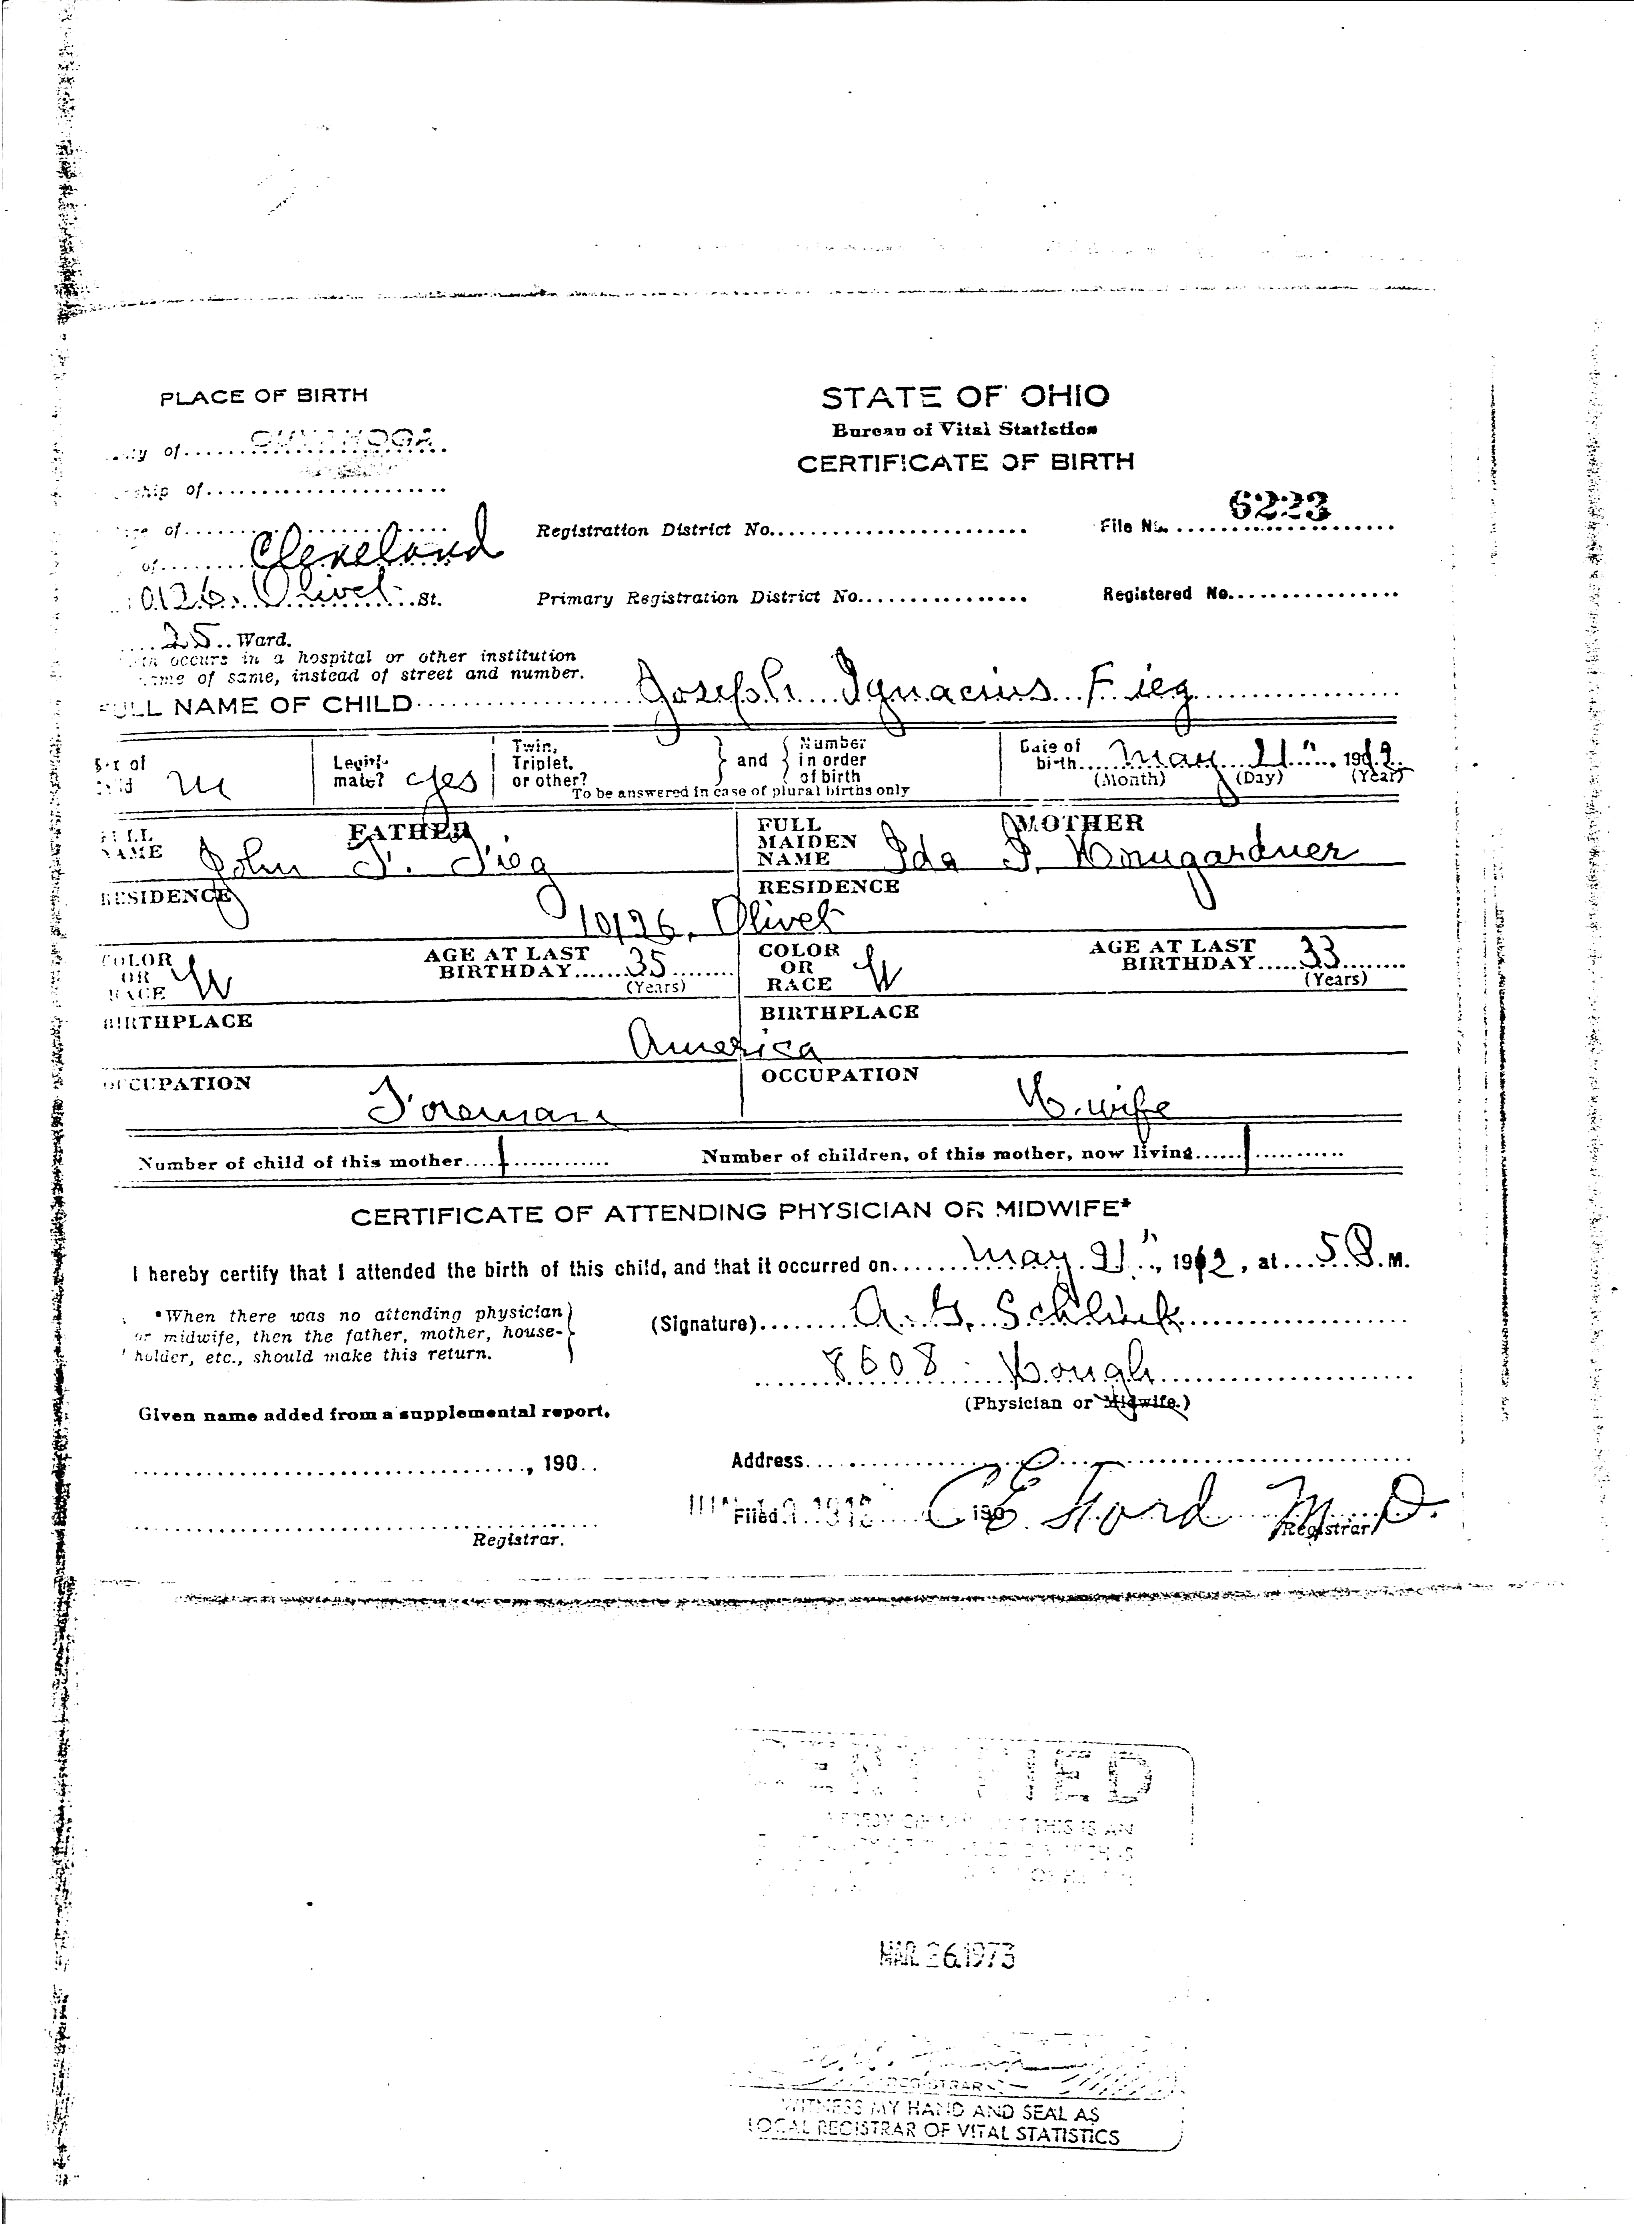 PLACE OF BIRTH
STATE OF OHIO
Bureau of Vital Statistics
CERTIFICATE OF BIRTH
of CUYAHOGA
ship of
of
of Cleveland
Registration District No.
File No. 6223
10126 Olivet St.
Primary Registration District No.
Registered No.
25 Ward.
occurs in a hospital or other institution
name of same, instead of street and number.
FULL NAME OF CHILD Joseph Ignacius Fieg
Sex of child M
Legitimate? yes
Twin, Triplet, or other?
and
Number in order of birth
To be answered in case of plural births only
Date of birth May 21", 1912
(Month) (Day) (Year)
FATHER
FULL NAME John F. Fieg
MOTHER
FULL MAIDEN NAME Ida
RESIDENCE
RESIDENCE
10126, Olivet
COLOR OR RACE W
AGE AT LAST BIRTHDAY 35 (Years)
COLOR OR RACE W
AGE AT LAST BIRTHDAY 33 (Years)
BIRTHPLACE
BIRTHPLACE
America
OCCUPATION Foreman
OCCUPATION H. wife
Number of child of this mother 1
Number of children, of this mother, now living 1
CERTIFICATE OF ATTENDING PHYSICIAN OR MIDWIFE*
I hereby certify that I attended the birth of this child, and that it occurred on May 21", 1912, at 5 P. M.
*When there was no attending physician
or midwife, then the father, mother, house-
holder, etc., should make this return.
(Signature) A. G. Schlink
8608 Hough
(Physician or Midwife.)
Given name added from a supplemental report.
, 190
Address
Registrar.
Filed 190 C E Ford M. D.
Registrar
THIS IS AN
MAR 26 1973
REGISTRAR
WITNESS MY HAND AND SEAL AS
LOCAL REGISTRAR OF VITAL STATISTICS